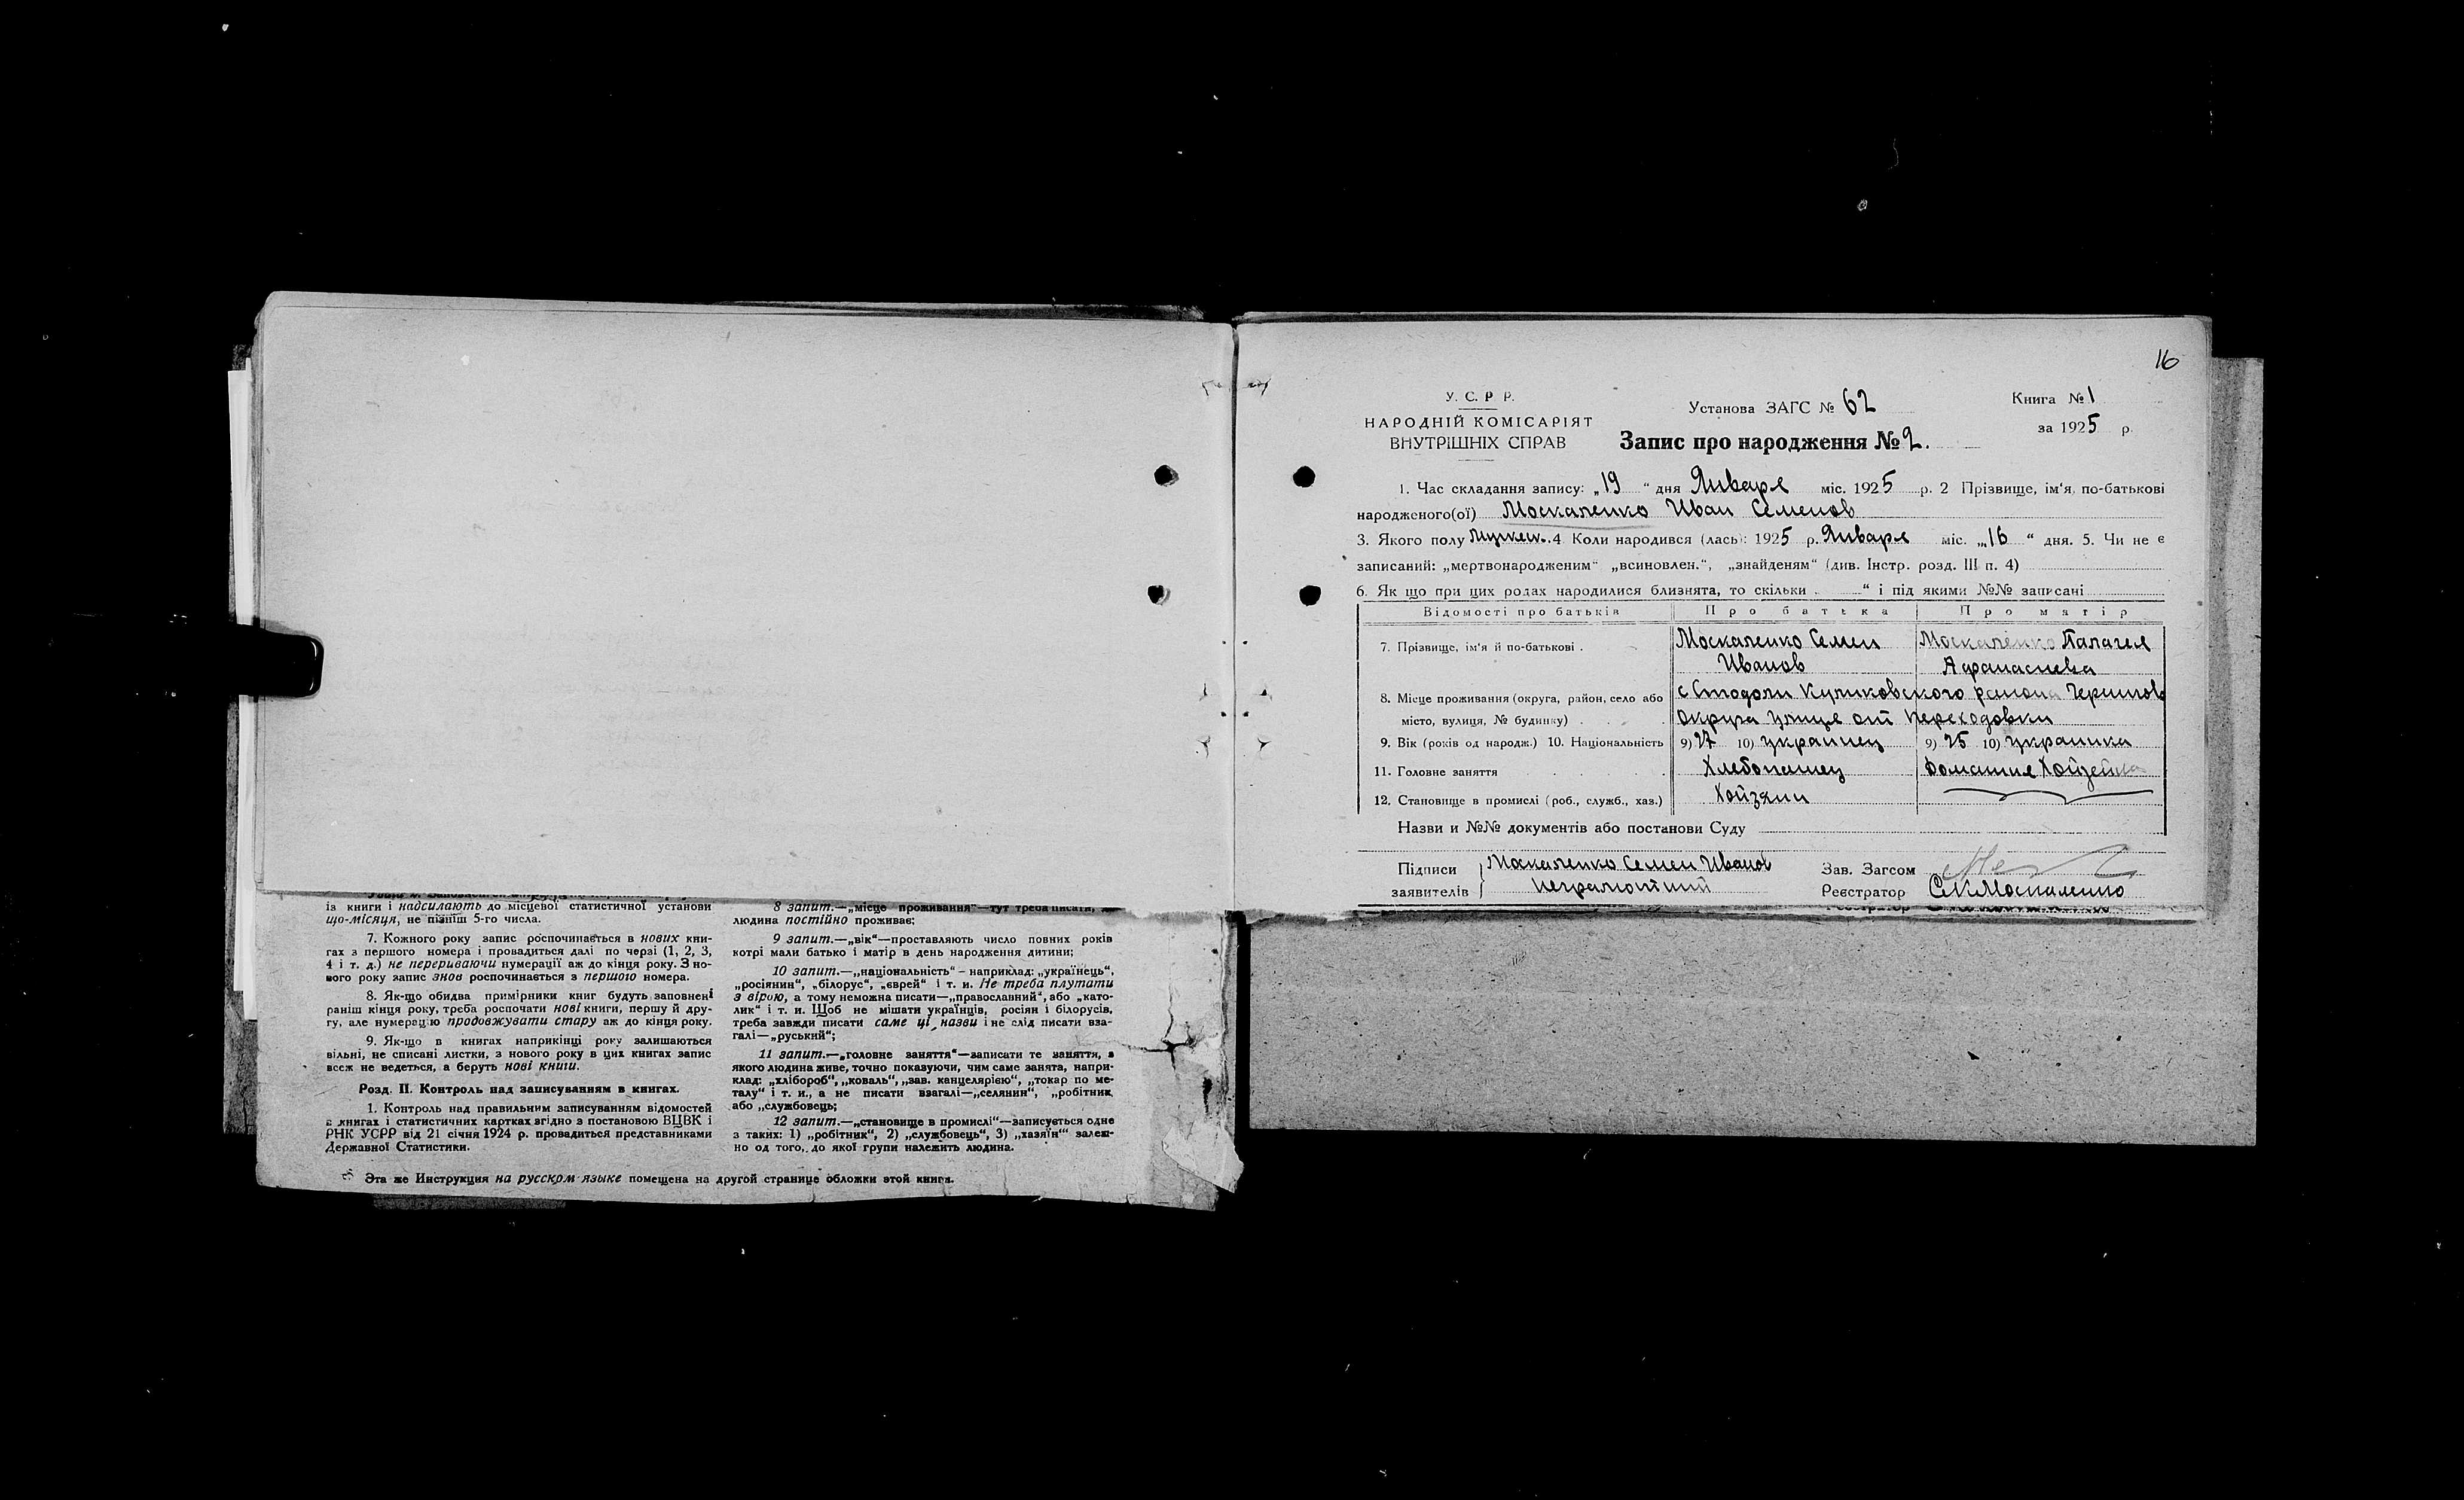 із книги і надсилають до місцевої статистичної установи
що-місяця, не пізніш 5-го числа.
7. Кожного року запис роспочинається в нових кни-
гах з першого номера і провадиться далі по черзі (1, 2, 3,
4 і т. д.) не перериваючи нумерації аж до кінця року. З но-
вого року запис знов роспочинається з першого номера.
8. Як-що обидва примірники книг будуть заповнені
раніш кінця року, треба роспочати нові книги, першу й дру-
гу, але нумерацію продовжувати стару аж до кінця року.
9. Як-що в книгах наприкінці року залишаються
вільні, не списані листки, з нового року в цих книгах запис
всеж не ведеться, а беруть нові книги.
Розд. II. Контроль над записуванням в книгах.
1. Контроль над правильним записуванням відомостей
в книгах і статистичних картках згідно з постановою ВЦВК і
РНК УСРР від 21 січня 1924 р. провадиться представниками
Державної Статистики.
8 запит.—„місце проживання“—тут треба писати, де
людина постійно проживає;
9 запит.—„вік“—проставляють число повних років
котрі мали батько і матір в день народження дитини;
10 запит.—„національність“ – наприклад: „українець“,
„росіянин“, „білорус“, „єврей“ і т. и. Не треба плутати
з вірою, а тому неможна писати—„православний“, або „като-
лик“ і т. и. Щоб не мішати українців, росіян і білорусів,
треба завжди писати саме ці назви і не слід писати вза-
галі—„руський“;
11 запит.—„головне заняття“—записати те заняття, з
якого людина живе, точно показуючи, чим саме занята, напри-
клад: „хлібороб“, „коваль“, „зав. канцелярією“, „токар по ме-
талу“ і т. и., а не писати взагалі—„селянин“, „робітник
або „службовець;
12 запит.—„становище в промислі“—записується одне
з таких: 1) „робітник“, 2) „службовець“, 3) „хазяїн“ залеж-
но од того, до якої групи належить людина.
Эта же Инструкция на русском языке помещена на другой странице обложки этой книги.
16
У. С. Р. Р.
НАРОДНІЙ КОМІСАРІЯТ
ВНУТРІШНІХ СПРАВ
Установа ЗАГС № 62
Запис про народження № 2.
Книга № 1
за 1925 р.
1. Час складання запису: „19“ дня Января міс. 1925 р. 2 Прізвище, ім'я, по-батькові
народженого(ої) Москаленко Иван Семенов
3. Якого полу Мужск. 4 Коли народився (лась): 1925 р. Января міс. „16“ дня. 5. Чи не є
записаний: „мертвонародженим“ „всиновлен.“, „знайденям“ (див. Інстр. розд. III п. 4)
6. Як що при цих родах народилися близнята, то скільки “ і під якими №№ записані
Відомості про батьків Про батька Про матір
7. Прізвище, ім'я й по-батькові . Москаленко Семен Москаленко Палагея
Иванов Афанасиева
8. Місце проживання (округа, район, село або с Стодоли Куликовского района Чернигов
місто, вулиця, № будинку) Округа улице от Переходовки
9. Вік (років од народж.) 10. Національність 9) 27 10) украинец 9) 25 10) украинка
11. Головне заняття Хлебопашец Домашняя Хойзейка
12. Становище в промислі (роб., служб., хаз.) Хойзяин
Назви и №№ документів або постанови Суду
Підписи Москаленко Семен Иванов Зав. Загсом
заявителів неграмотний Реєстратор С.К.Москаленко